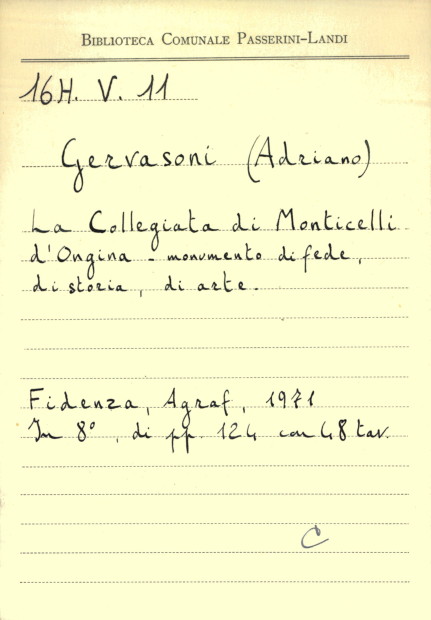 BIBLIOTECA COMUNALE PASSERINI-LANDI
16H. V. 11
Gervasoni (Adriano)
La Collegiata di Monticelli
d'Ongina - monumento di fede,
di storia, di arte.
Fidenza, Agraf, 1971
In 8°, di pp. 124 con 48 tav.
C